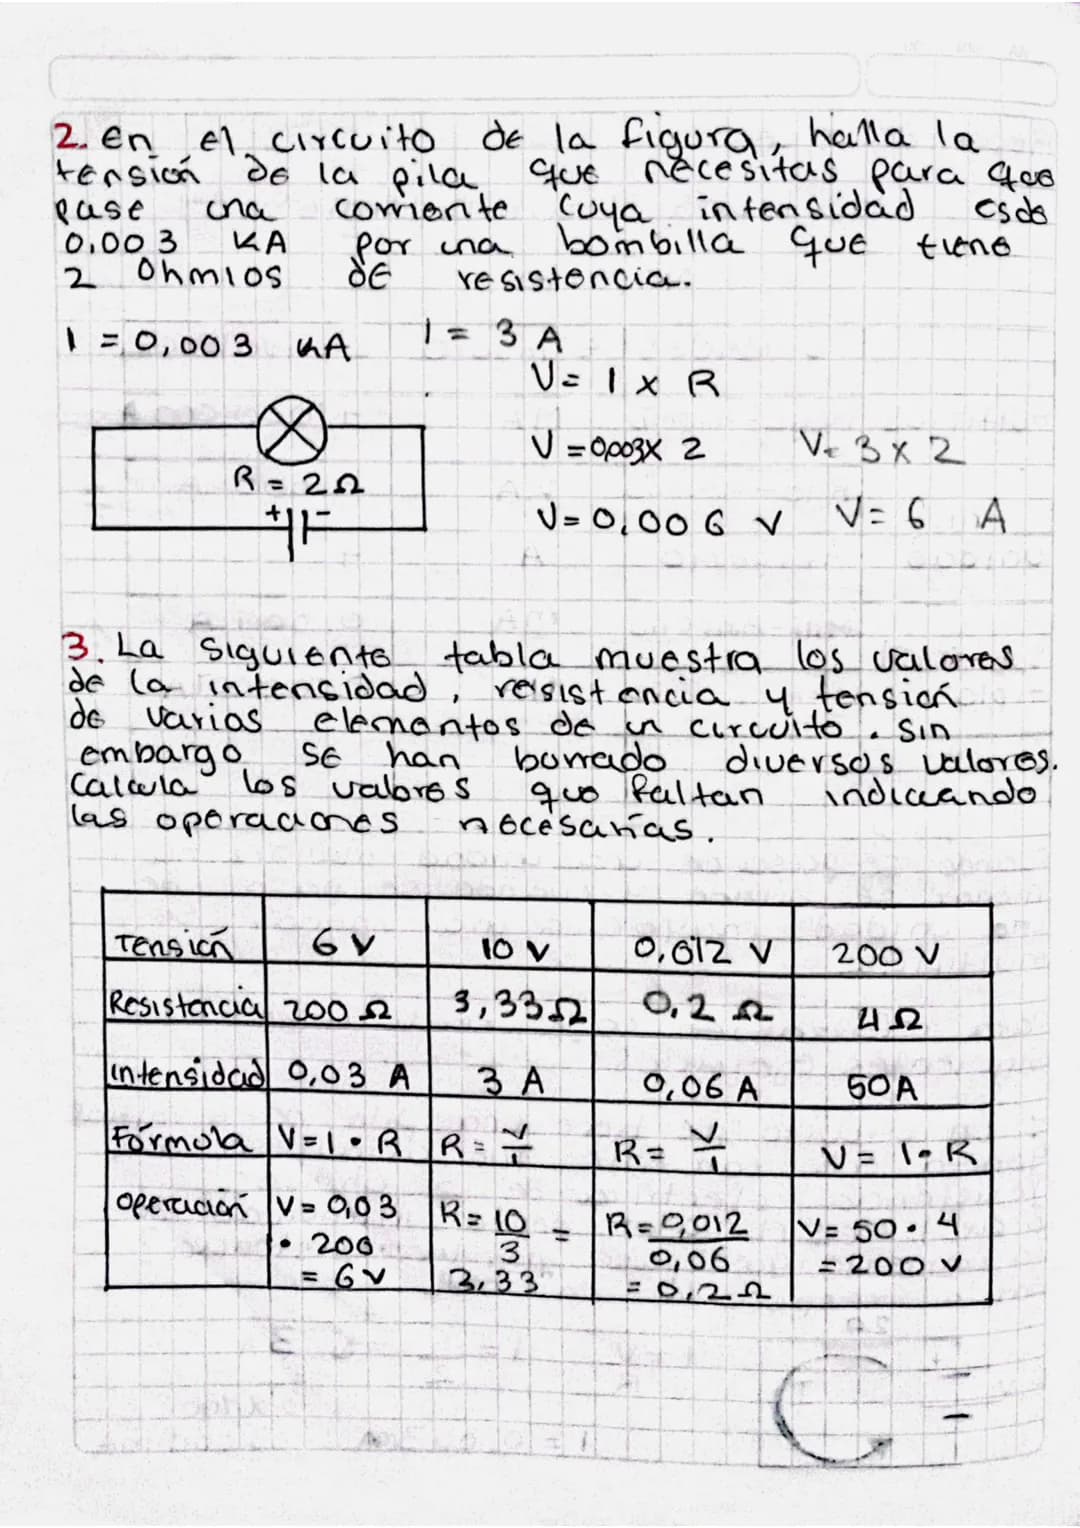 2. en el circuito de la figura, halla la
tensión de la pila que necesitas para que
pase una corriente cuya intensidad es de
0,003 KA por una bombilla que tiene
2 Ohmios de resistencia.
I = 0,003 KA I = 3 A
V = I x R
R = 2Ω
+ -
V = 0,003 x 2 V = 3 x 2
V = 0,006 V V = 6 A
3. La siguiente tabla muestra los valores
de la intensidad, resistencia y tensión
de varios elementos de un circuito. Sin
embargo se han borrado diversos valores.
Calcula los valores que faltan indicando
las operaciones necesarias.
Tensión 6 V 10 V 0,012 V 200 V
Resistencia 200 Ω 3,33Ω 0,2 Ω 4Ω
intensidad 0,03 A 3 A 0,06 A 50A
Fórmula V=I•R R=V/I R=V/I V=I•R
operación V = 0,03 R= 10/3 = R=0,012/0,06 V= 50•4
• 200 3,33 = 0,2Ω = 200 V
= 6V